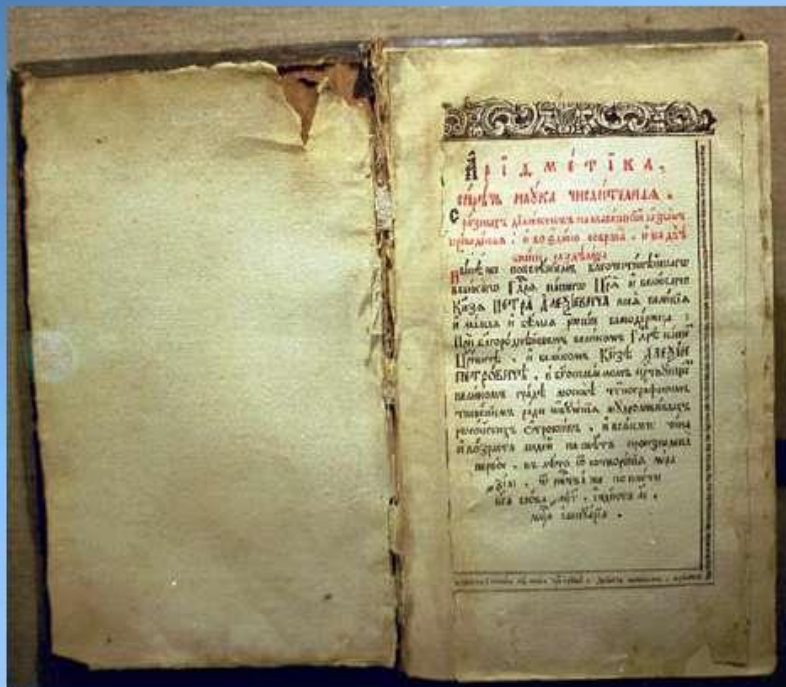 А҆рїѳмétїка,
сирѣчь наука числительная.
С разныхъ дїалектовъ на славенскїй языкъ
преведеная, и во едино собрана, и на двѣ
книги раздѣлена
Нынѣ же повелѣнїемъ благочестивѣйшаго
великаго Гд҃ря нашегѡ Цр҃я и великагѡ
Кнѧ҃зя ПЕТРА АЛЕѮЇЕВИЧА всея великїя
и малыя и бѣлыя россїи самодержца:
При благороднѣйшемъ великомъ Гд҃рѣ нашемъ
Цр҃евичѣ, и великомъ Кнѧ҃зѣ АЛЕѮЇИ
ПЕТРОВИЧѢ, в богоспасаемомъ царствующемъ
великомъ градѣ москвѣ типографскимъ
тисненїемъ ради обученїя мудролюбивыхъ
россїйскихъ отрокѡвъ, и всякагѡ чина
и возраста людей на свѣтъ произведена
первое, въ лѣто ѿ сотворенїя мїра
ѿ рождества же по плоти
бг҃а слова, індїкта
мц҃а їаннуарїа.